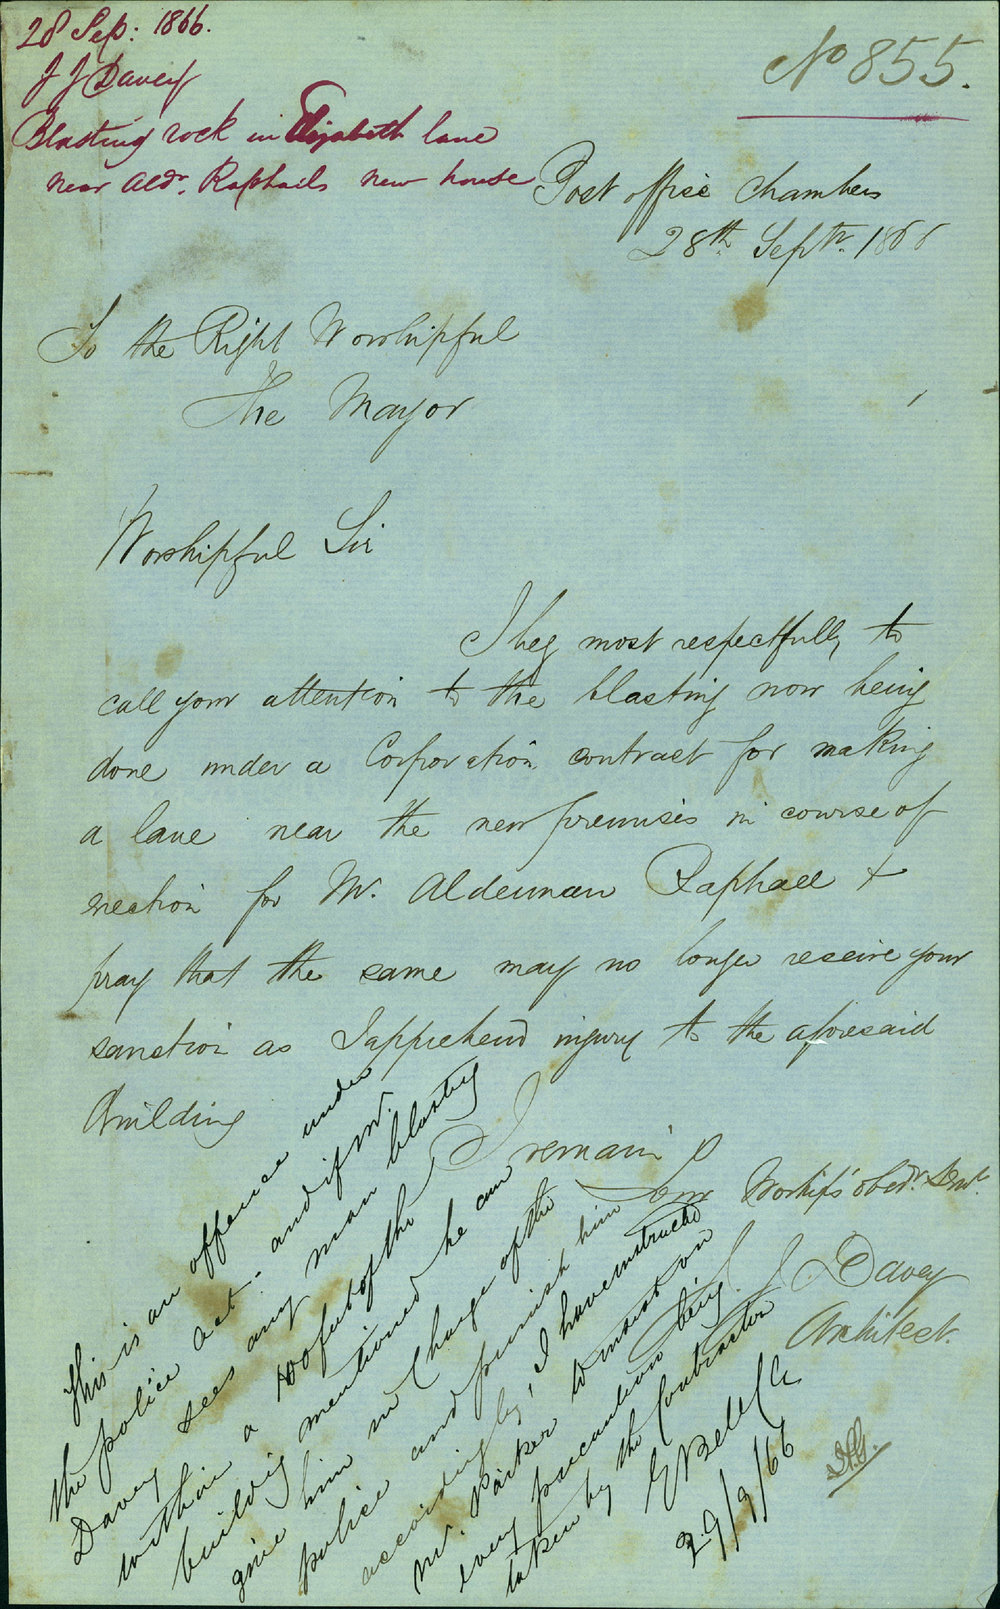 28 Sep: 1866.
J J Davey
Blasting rock in Elizabeth lane
near Aldr. Raphaels new house
No 855.
Post office Chambers
28th Septr. 1866
To the Right Worshipful
The Mayor
Worshipful Sir
I beg most respectfully to
call your attention to the blasting now being
done under a Corporation contract for making
a lane near the new premises in course of
erection for Mr. Alderman Raphael +
pray that the same may no longer receive your
sanction as I apprehend injury to the aforesaid
building
I remain
Your Worship's obedt. Servt.
J J Davey
Architect.
This is an offence under
the police act - and if Mr.
Davey sees any man blasting
within a 100 feet of the
building mentioned he can
give him in Charge of the
police and punish him
accordingly, I have instructed
Mr. Parker to insist on
every precaution being
taken by the Contractor
E Bell CE
29/9/66